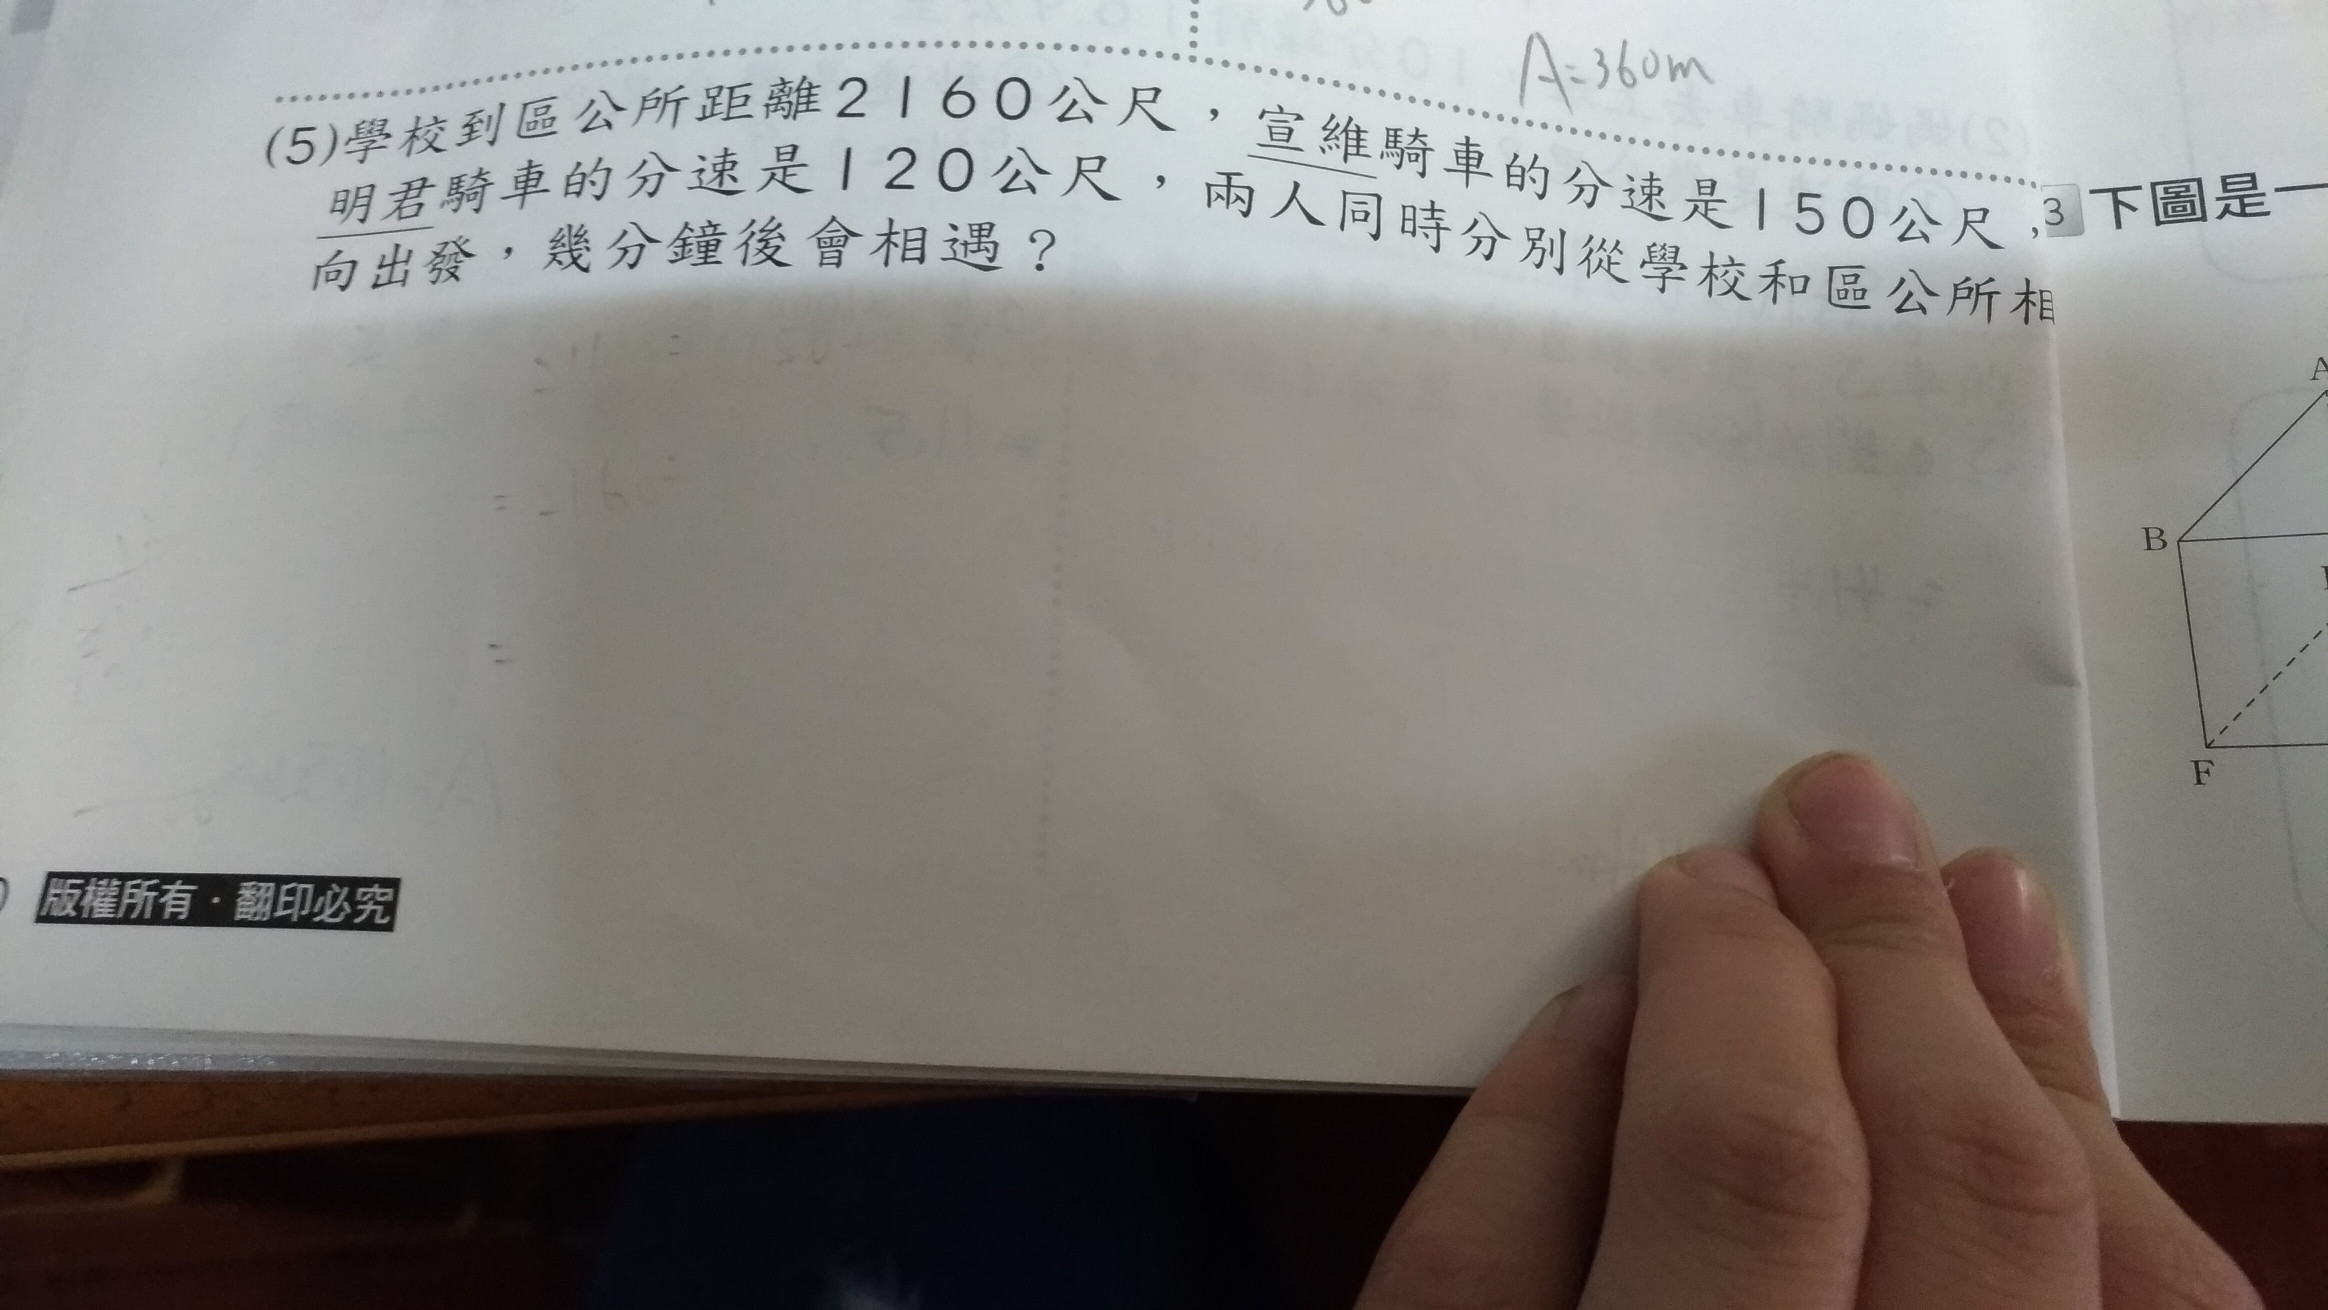 A=360m
(5)學校到區公所距離2160公尺，宣維騎車的分速是150公尺，
明君騎車的分速是120公尺，兩人同時分別從學校和區公所相
向出發，幾分鐘後會相遇？
版權所有·翻印必究
3 下圖是一
A
B
F